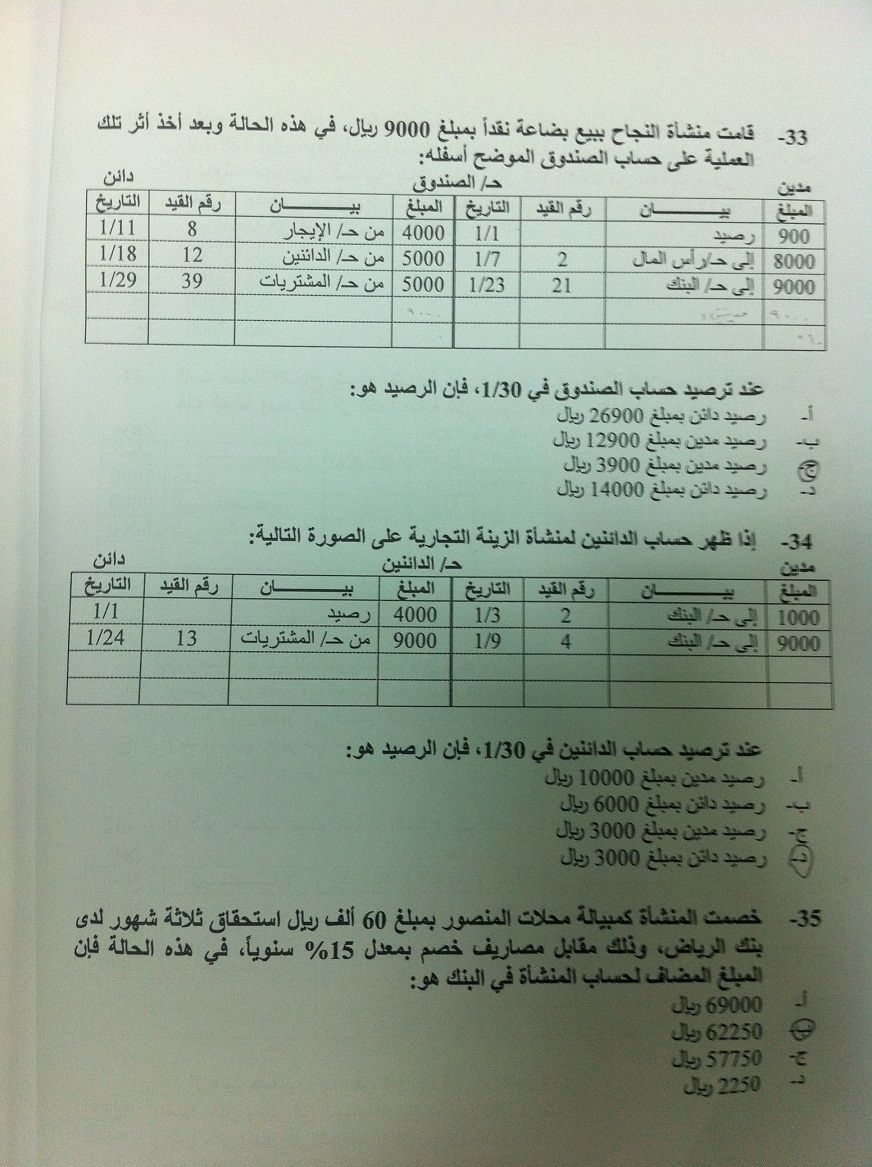 33- قامت منشأة النجاح ببيع بضاعة نقداً بمبلغ 9000 ريال، في هذه الحالة وبعد أخذ أثر تلك
العملية على حساب الصندوق الموضح أسفله:
مدين حـ/ الصندوق دائن
المبلغ بيـــــــــــان رقم القيد التاريخ المبلغ بيـــــــــــان رقم القيد التاريخ
900 رصيد 1/1 4000 من حـ/ الإيجار 8 1/11
8000 إلى حـ/رأس المال 2 1/7 5000 من حـ/ الدائنين 12 1/18
9000 إلى حـ/ البنك 21 1/23 5000 من حـ/ المشتريات 39 1/29
٩٠٠٠ ٩٠٠٠
عند ترصيد حساب الصندوق في 1/30، فإن الرصيد هو:
أ- رصيد دائن بمبلغ 26900 ريال
ب- رصيد مدين بمبلغ 12900 ريال
ج- رصيد مدين بمبلغ 3900 ريال
د- رصيد دائن بمبلغ 14000 ريال
34- إذا ظهر حساب الدائنين لمنشأة الزينة التجارية على الصورة التالية:
مدين حـ/ الدائنين دائن
المبلغ بيـــــــــــان رقم القيد التاريخ المبلغ بيـــــــــــان رقم القيد التاريخ
1000 إلى حـ/ البنك 2 1/3 4000 رصيد 1/1
9000 إلى حـ/ البنك 4 1/9 9000 من حـ/ المشتريات 13 1/24
عند ترصيد حساب الدائنين في 1/30، فإن الرصيد هو:
أ- رصيد مدين بمبلغ 10000 ريال
ب- رصيد دائن بمبلغ 6000 ريال
ج- رصيد مدين بمبلغ 3000 ريال
د- رصيد دائن بمبلغ 3000 ريال
35- خصمت المنشأة كمبيالة محلات المنصور بمبلغ 60 ألف ريال استحقاق ثلاثة شهور لدى
بنك الرياض، وذلك مقابل مصاريف خصم بمعدل 15% سنوياً، في هذه الحالة فإن
المبلغ المضاف لحساب المنشأة في البنك هو:
أ- 69000 ريال
ب- 62250 ريال
ج- 57750 ريال
د- 2250 ريال